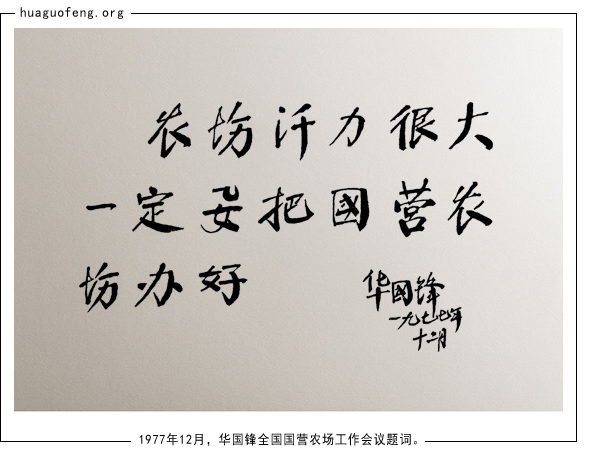 huaguofeng.org
农场潜力很大
一定要把國营农
场办好
华國锋
一九七七年
十二月
1977年12月，华国锋全国国营农场工作会议题词。